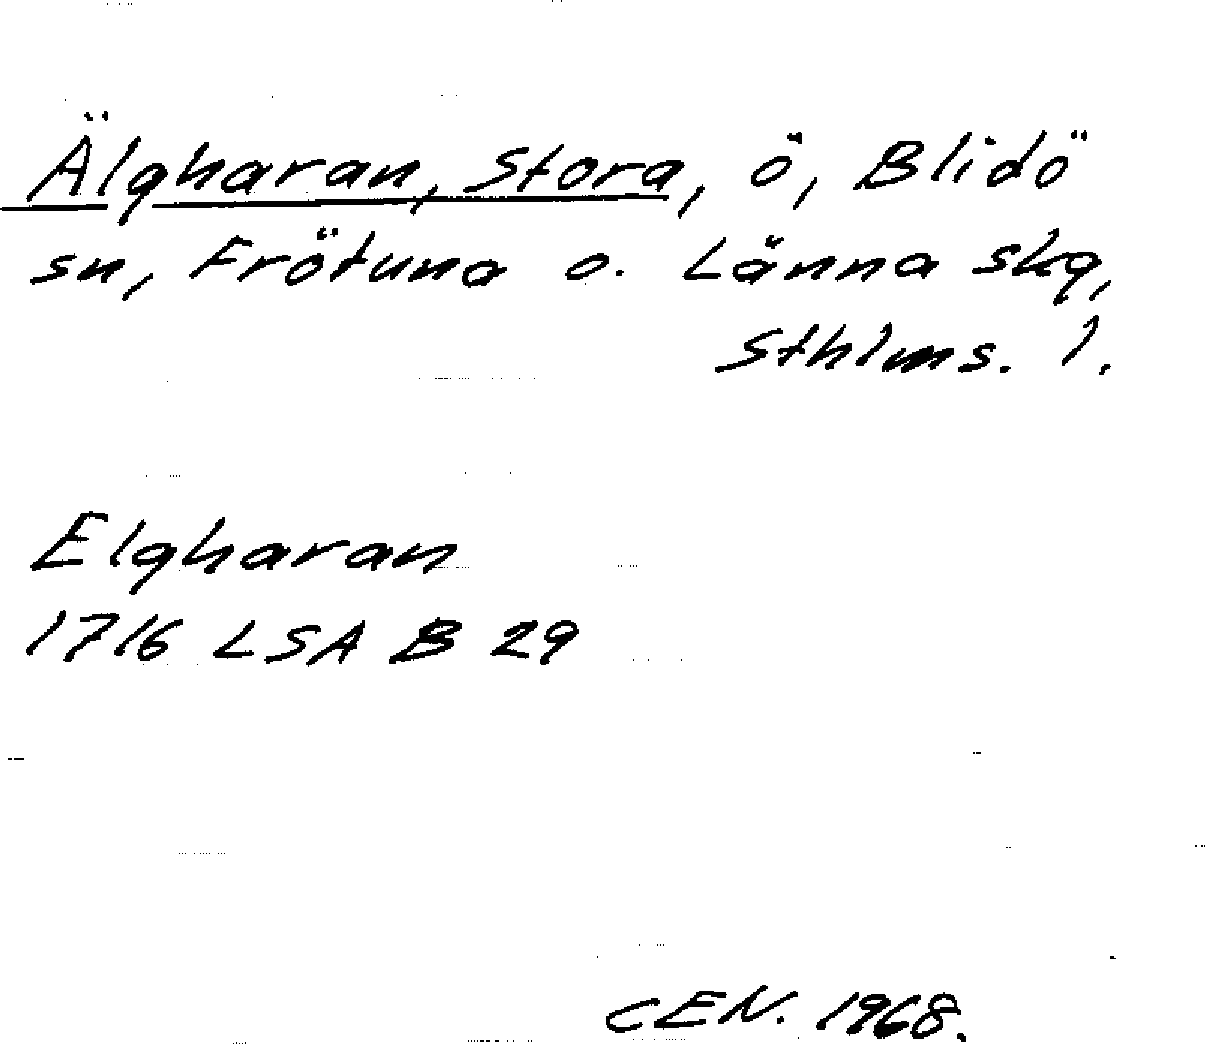 Älgharan, Stora, ö, Blidö
sn, Frötuna o. Länna skg,
Sthlms. l.
Elgharan
1716 LSA B 29
CEN. 1968.